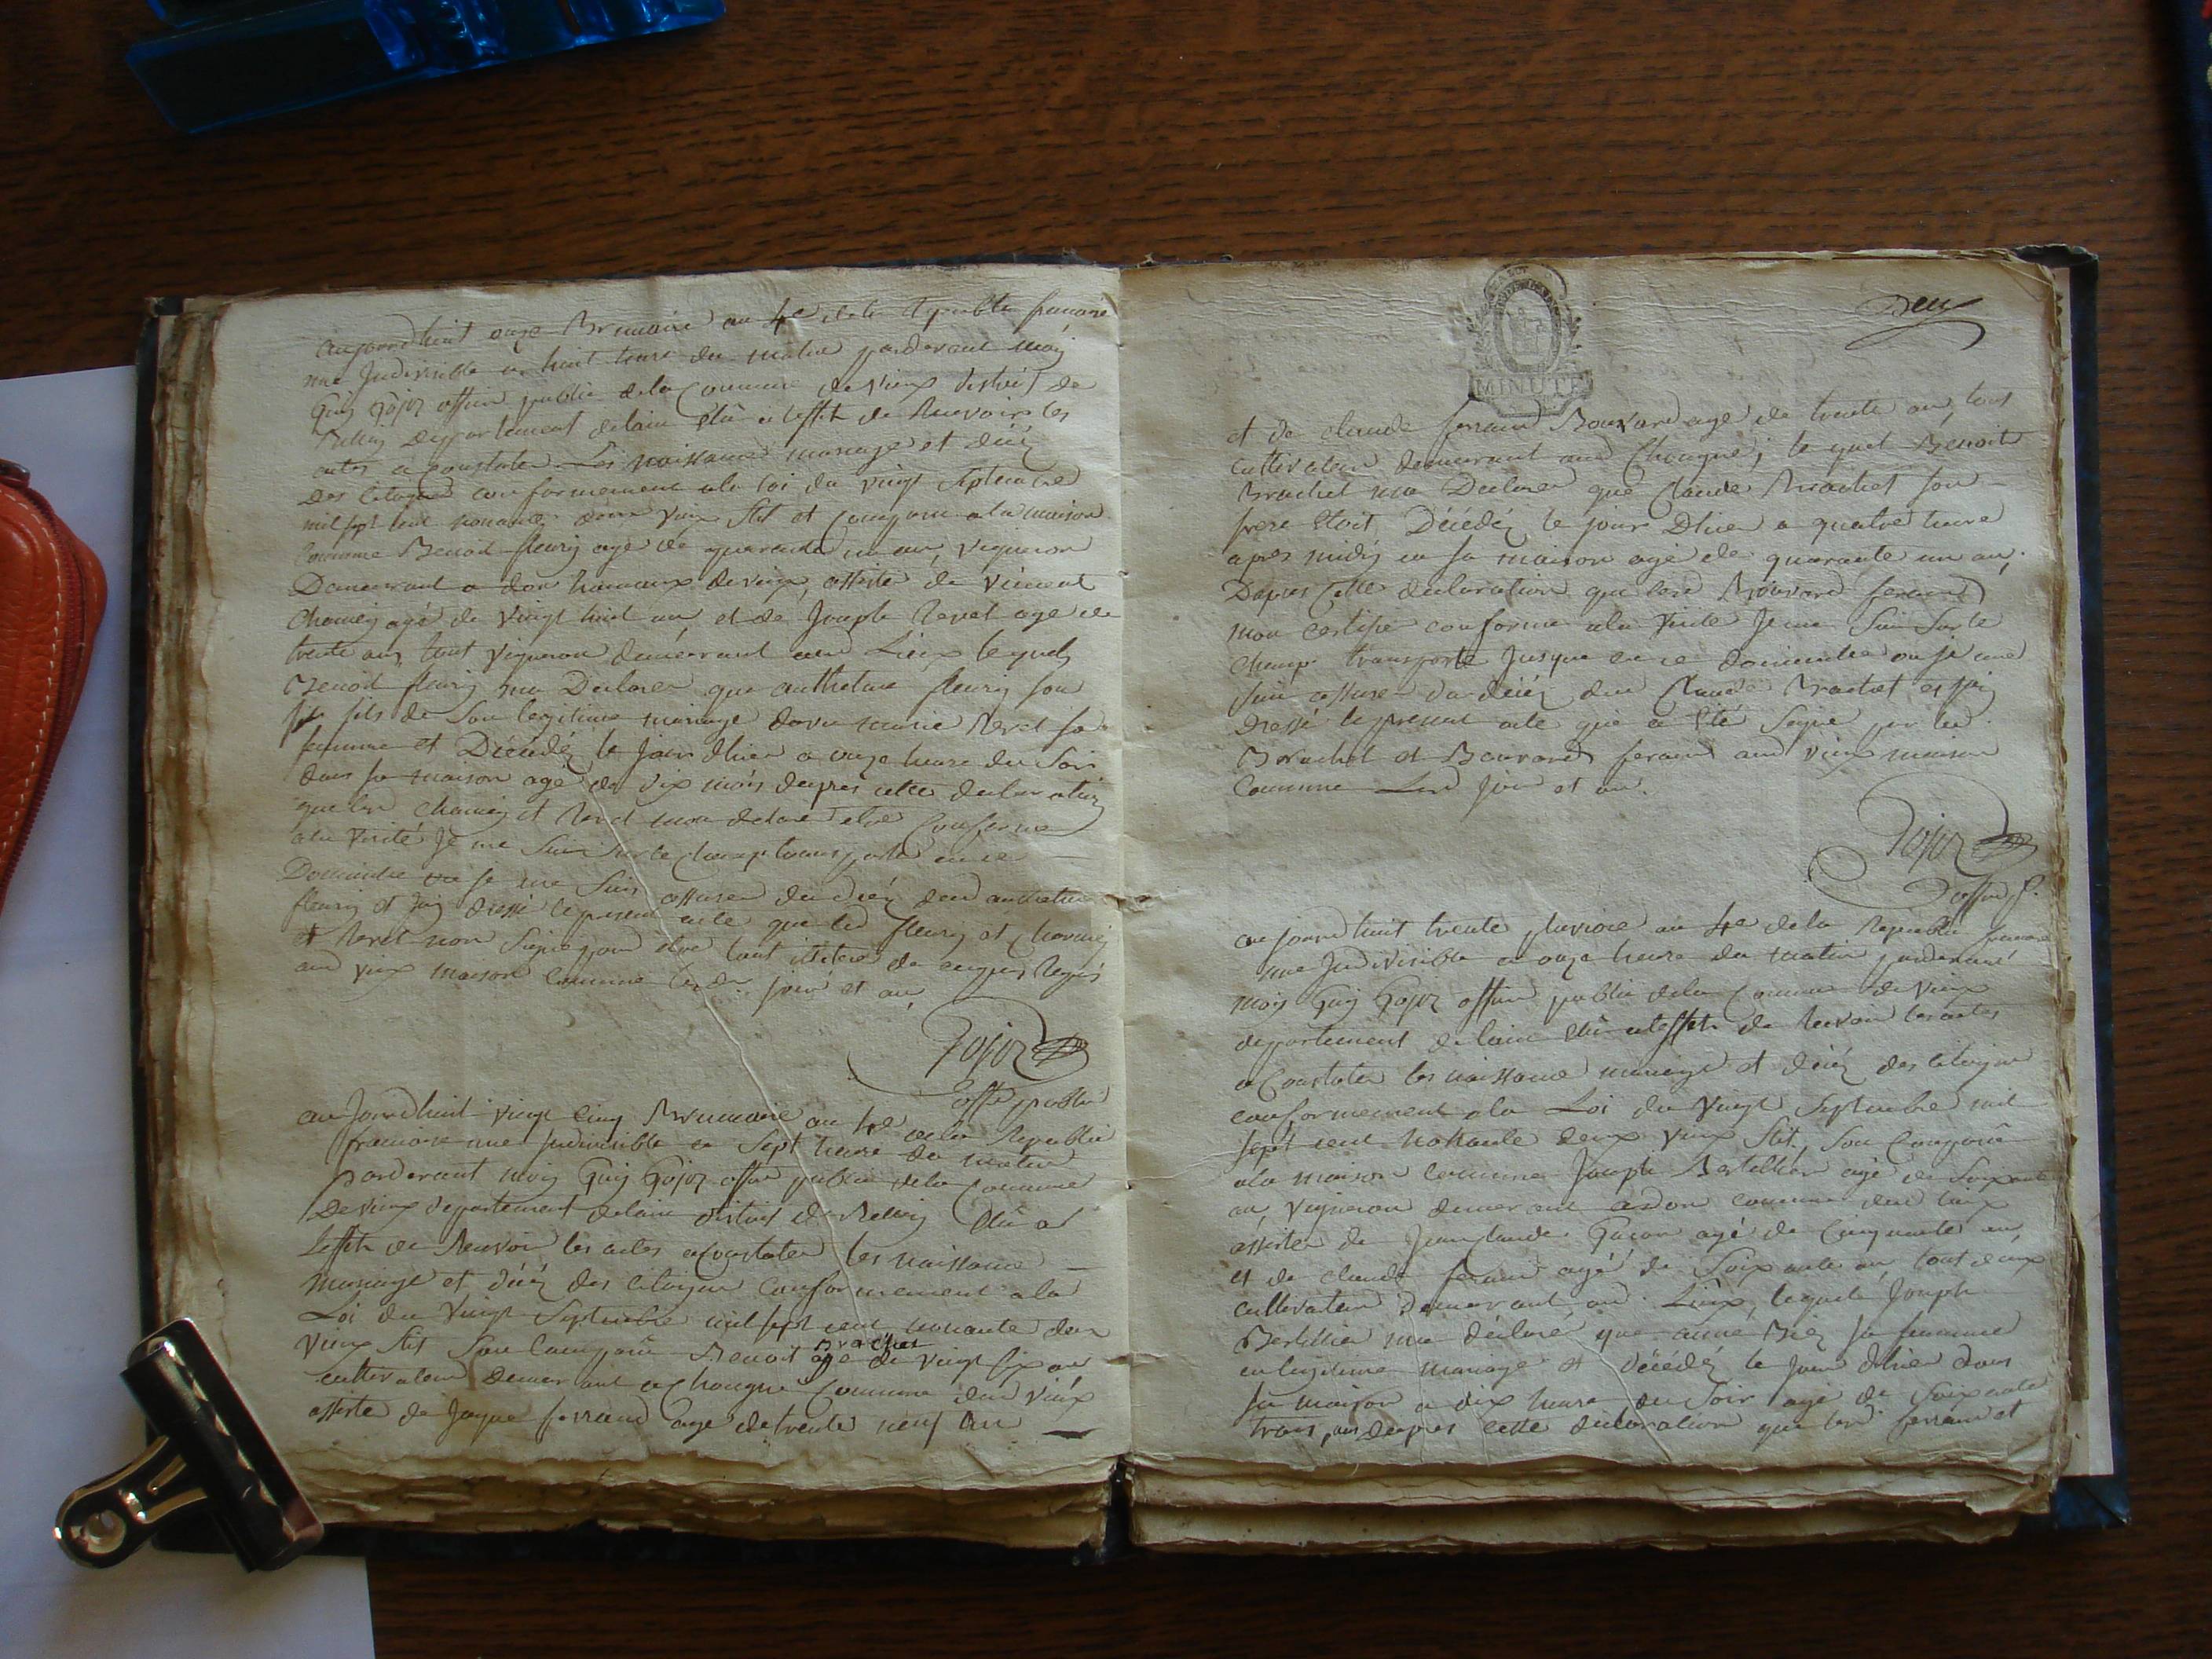 aujourdhuit onze Brumaire an 4e dela Republi francoise
une Indivisible a huit heure du matin pardevant moij
Guij Gojoz officier public dela Commune de Vieux district de
Belleij Deppartement delain élû a leffet de Recevoir les
actes a constater Les naissance mariage et décéz
Des Citoyen conformement ala loi du vingt Septembre
mil sept cent nonante deux vieux stit et Comparu ala maison
Commune Benoit fleurij age de quarante un an, vigneron
Demeurant a don hameaux de vieux, assisté de vincent
agé de vingt huit an et de Joseph Revet age de
trente an, tout vigneron demeurant aud Lieux lequel
Benoit fleurij ma Declarer que anthelme fleurij son
fils de Son legitime mariage davec marie Revet sa
femme et Décedéz le jour dhier a onze heure du Soir
dans sa maison age de dix mois depres cette declaration
que led et Revet mon declaré etre Conforme
ala verité Je me Suis sur le champ transporté en ce
Domicile ou je me Suis assurer du décéz dud anthelme
fleurij et jaij dressé le present acte que led fleurij et
et Revet non Signé pour etre tout illitere de enquis Requis
aud vieux maison Commune lesd jour et an
Gojoz
offi public
aujourdhuit vingt cinq Brumaire an 4e dela Republi
francoise une Indivisible a Sept heure du matin
pardevant moij Guij Gojoz offi public dela Commune
De vieux departement delain district de Belleij élû a
Leffet de Recevoir les actes a Constater les naissance
mariage et décéz des Citoyen Conformement ala
Loi du vingt Septembre mil sept cent nonante deux
vieux stit Son Comparû Benoit Brachet age de vingt six an
cultivateur Demeurant a Chongne Commune dud vieux
assisté de Jaque ferrand age de trente neuf an
MINUTE
Deux
et de claude ferrand Bouvard age de trente an, tous
cultivateur demeurant aud Chongne; le quel Benoit
Brachet ma Declarer que Claude Brachet son
frere etoit Décédéz le jour Dhier a quatre heure
apres midij en sa maison age de quarante un an.
Depres cette declaration que lesd Bouvard ferrand
mon certifié conforme ala verité Je me Suis Sur le
champ transporté jusque en ce domicile ou je me
suis assurer du décéz dud Claude Brachet et jaij
Dressé le present acte qui a été Signé par led
Brachet et Bouvard ferrand aud vieux maison
Commune Lesd jour et an.
Gojoz
offici p.
aujourdhuit trente pluviose an 4e dela Republi francoise
une Indivisible a onze heure du matin pardevant
moij Guij Gojoz officier public dela Commune de vieux
departement delain élû aleffet de Recevoir les actes
a Constater les naissance mariage et décéz des Citoyen
conformement ala Loi du vingt Septembre mil
sept cent nonante deux vieux stit, Son Comparû
ala maison commune Joseph Bertillier agé de Soixante
an, vigneron demeurant adon commune dud lieux
assister de Jean Claude agé de Cinquante an
et de claude ferrand agé de Soixante an tout deux
cultivateur Demeurant aud Lieux, lequel Joseph
Bertillier ma declaré que anne Biez sa femme
en legitime mariage et Décédéz le jour dhier dans
sa maison a dix heure du Soir age de Soixante
trois an Depres cette declaration que lesd ferrand et